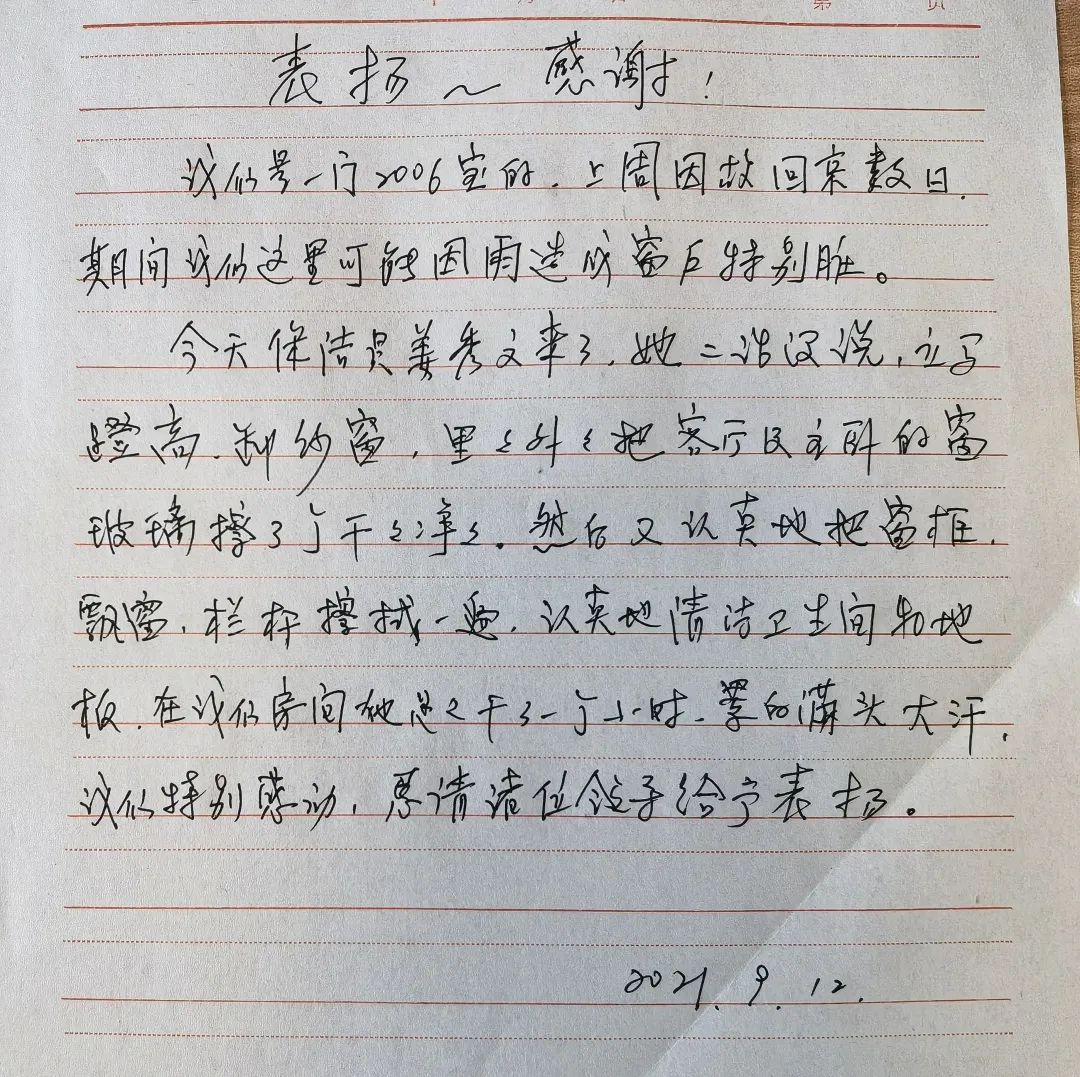 年 月 日 第 页
表扬~感谢！
我们是一门2006室的，上周因故回京数日，
期间我们这里可能因雨造成窗户特别脏。
今天保洁员姜秀文来了，她二话没说，立马
蹬高、卸纱窗，里里外外把客厅及主卧的窗
玻璃擦了个干干净净。然后又认真地把窗框、
飘窗、栏杆擦拭一遍，认真地清洁卫生间和地
板，在我们房间她总之干了一个小时，累的满头大汗，
我们特别感动，恳请诸位领导给予表扬。
2021.9.12.